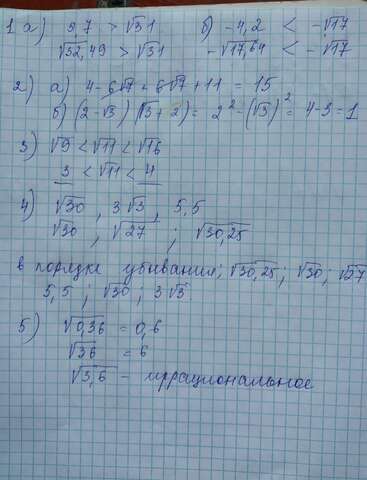 1 а) 5,7 > √31 б) -4,2 < -√17
√32,49 > √31 -√17,64 < -√17
2) а) 4 - 6√7 + 6√7 + 11 = 15
б) (2-√3)(√3+2) = 2² - (√3)² = 4-3=1
3) √9 < √11 < √16
3 < √11 < 4
4) √30 , 3√3 , 5,5
√30 , √27 ; √30,25
в порядке убывания; √30,25; √30; √27
5,5 ; √30 ; 3√3
5) √0,36 = 0,6
√36 = 6
√3,6 - иррациональное